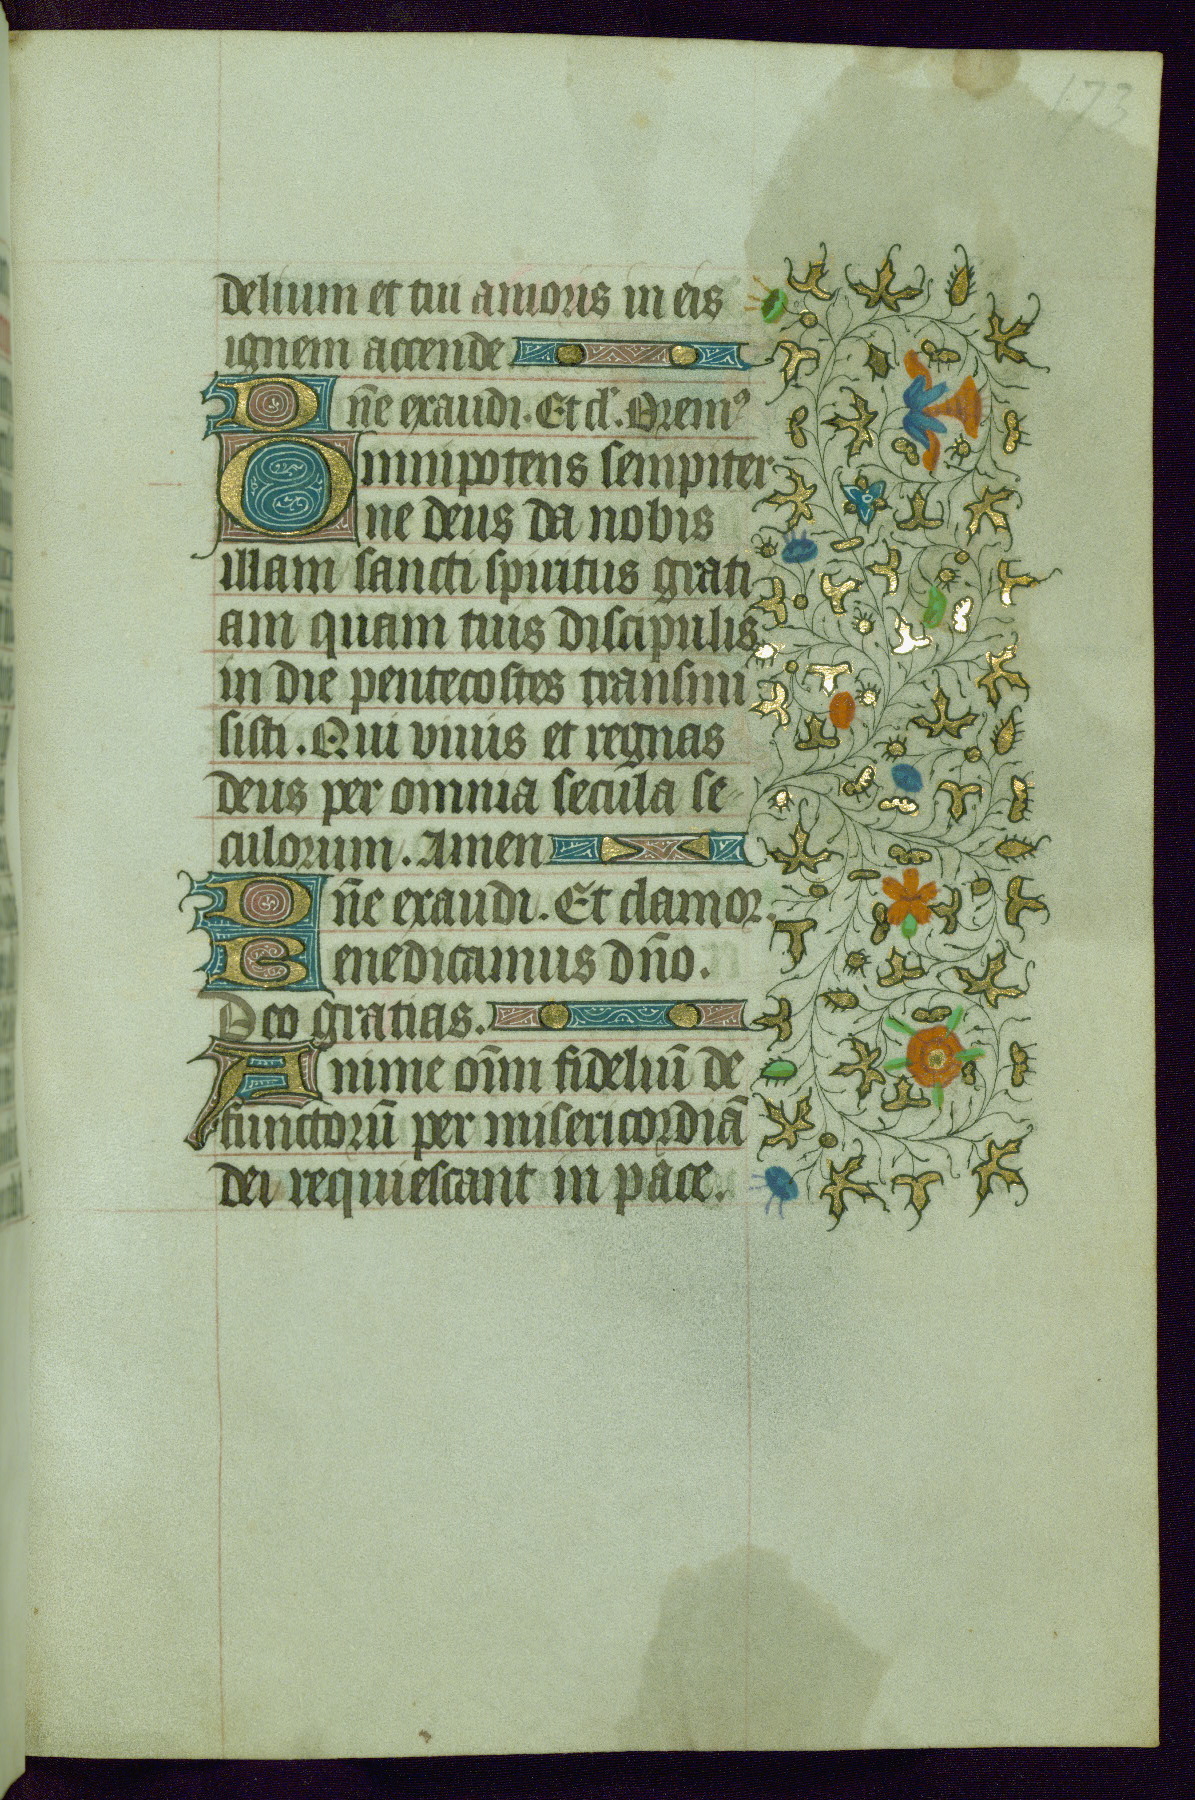 173
delium et tui amoris in eis
ignem accende
Dn̄e exaudi. Et cl'. Orem⁹
Omnipotens sempiter
ne deus da nobis
illam sancti spiritus grati
am quam tuis discipulis
in die pentecostes transmi
sisti. Qui viuis et regnas
deus per omnia secula se
culorum. Amen
Dn̄e exaudi. Et clamor.
Benedicamus dn̄o.
Deo gratias.
Anime om̄i fideliū de
functorū per misericordiā
dei requiescant in pace.